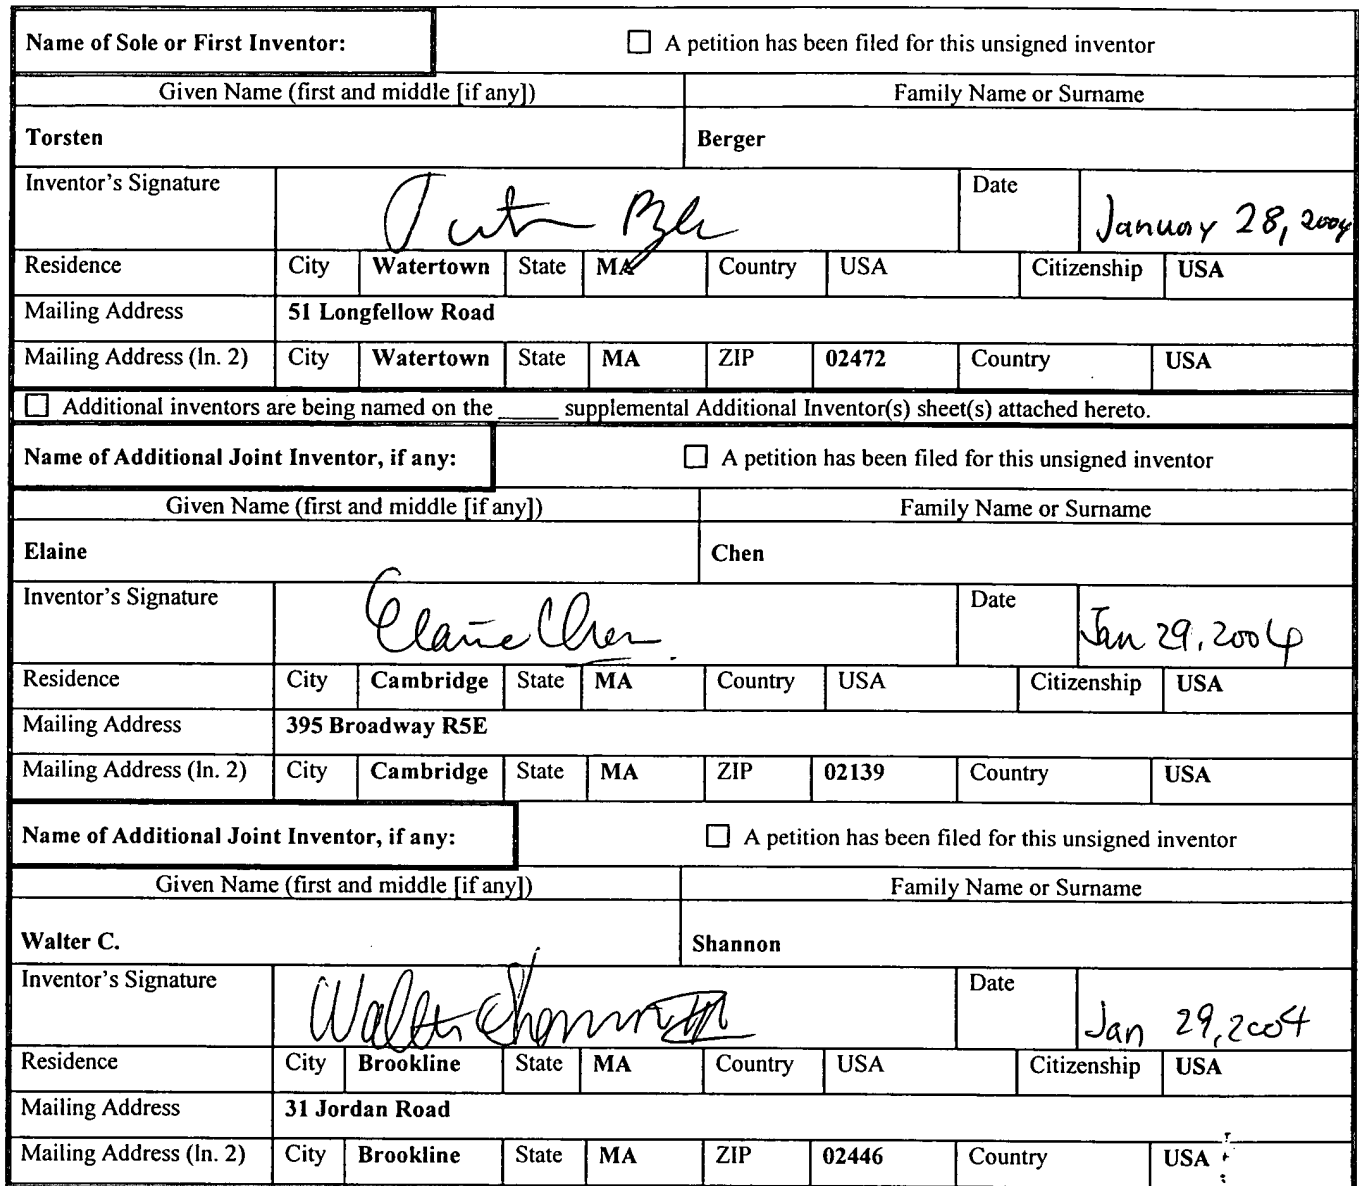 Name of Sole or First Inventor: ☐ A petition has been filed for this unsigned inventor
Given Name (first and middle [if any]) Family Name or Surname
Torsten Berger
Inventor's Signature Date January 28, 2004
Residence City Watertown State MA Country USA Citizenship USA
Mailing Address 51 Longfellow Road
Mailing Address (ln. 2) City Watertown State MA ZIP 02472 Country USA
☐ Additional inventors are being named on the _____ supplemental Additional Inventor(s) sheet(s) attached hereto.
Name of Additional Joint Inventor, if any: ☐ A petition has been filed for this unsigned inventor
Given Name (first and middle [if any]) Family Name or Surname
Elaine Chen
Inventor's Signature Elaine Chen Date Jan 29, 2004
Residence City Cambridge State MA Country USA Citizenship USA
Mailing Address 395 Broadway R5E
Mailing Address (ln. 2) City Cambridge State MA ZIP 02139 Country USA
Name of Additional Joint Inventor, if any: ☐ A petition has been filed for this unsigned inventor
Given Name (first and middle [if any]) Family Name or Surname
Walter C. Shannon
Inventor's Signature Walter C Shannon III Date Jan 29, 2004
Residence City Brookline State MA Country USA Citizenship USA
Mailing Address 31 Jordan Road
Mailing Address (ln. 2) City Brookline State MA ZIP 02446 Country USA